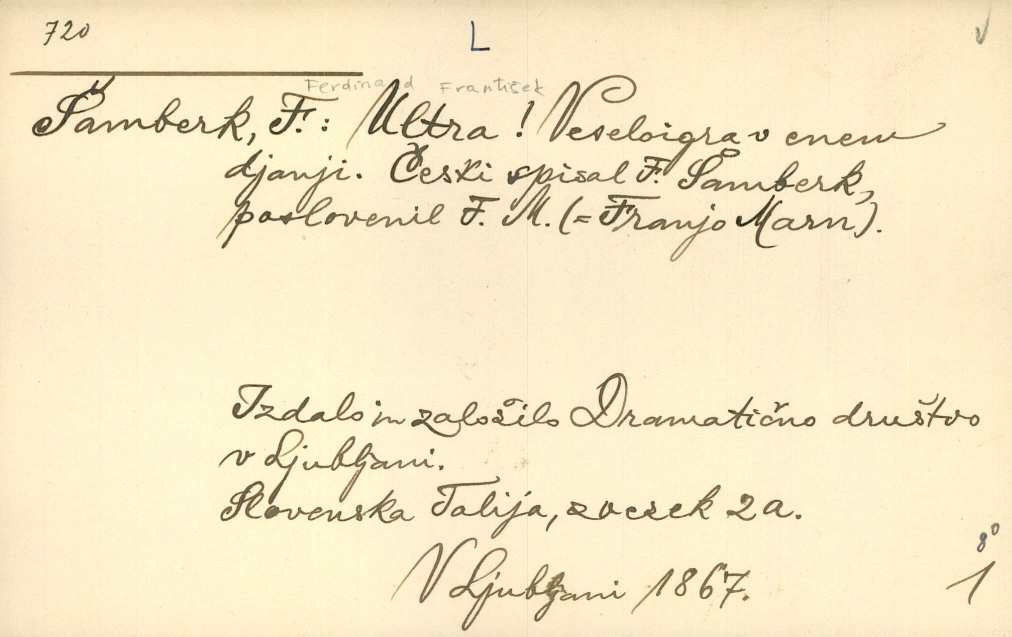 720
L
Ferdinand František
Šamberk, F.: Ultra! Veseloigra v enem
djanji. Češki spisal F. Šamberk,
poslovenil F. M. (= Franjo Marn).
Izdalo in založilo Dramatično društvo
v Ljubljani.
Slovenska Talija, zvezek 2a.
8⁰
V Ljubljani 1867.
1